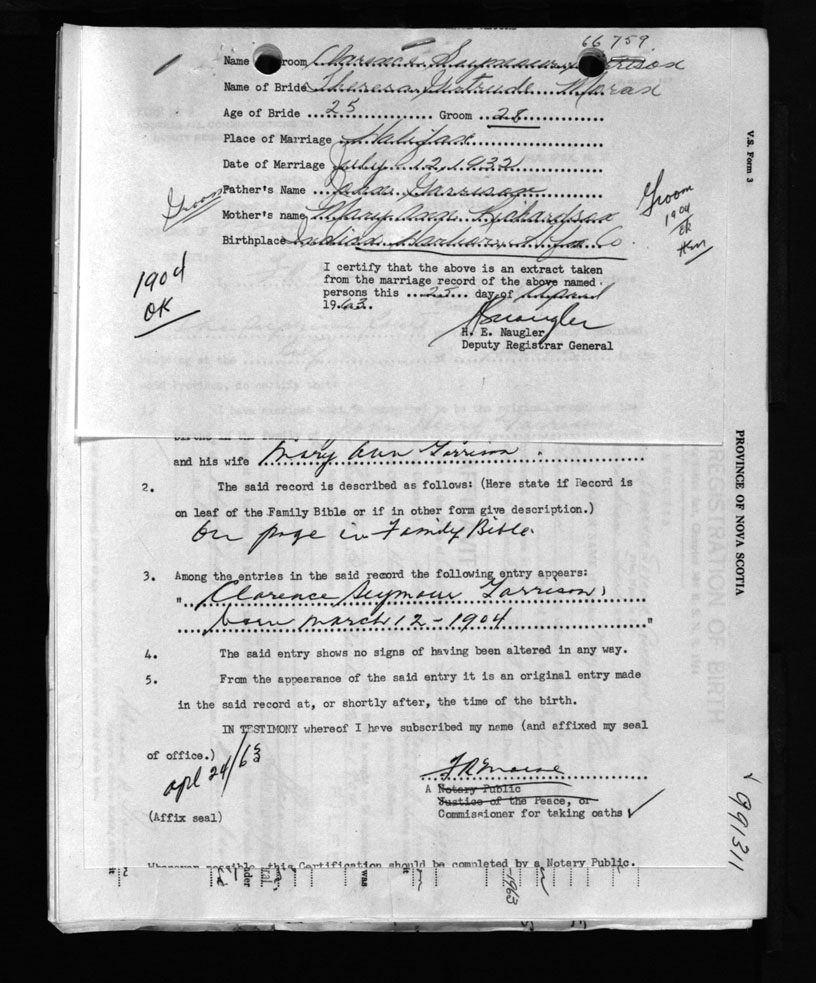 66759
Name room Clarence Seymour rrison
Name of Bride Theresa Gertrude Moran
Age of Bride 25 Groom 28
Place of Marriage Halifax
Date of Marriage July 12, 1932
Groom Father's Name John Garrison
Mother's name Mary Ann Richardson
Birthplace Indian Harbour, Hfx Co.
Groom
1904
OK
HEN
1904
OK
I certify that the above is an extract taken
from the marriage record of the above named
persons this 25 day of April
1963.
H. E. Naugler
Deputy Registrar General
and his wife Mary Ann Garrison.
2. The said record is described as follows: (Here state if Record is
on leaf of the Family Bible or if in other form give description.)
On page in Family Bible
3. Among the entries in the said record the following entry appears:
" Clarence Seymour Garrison,
born March 12 - 1904 "
4. The said entry shows no signs of having been altered in any way.
5. From the appearance of the said entry it is an original entry made
in the said record at, or shortly after, the time of the birth.
IN TESTIMONY whereof I have subscribed my name (and affixed my seal
of office.)
Apl 24/63
A Notary Public
Justice of the Peace, or
Commissioner for taking oaths ✓
(Affix seal)
Whenever possible, this Certification should be completed by a Notary Public.
was
it
-1963
V.S. Form 3
PROVINCE OF NOVA SCOTIA
REGISTRATION OF BIRTH
991311